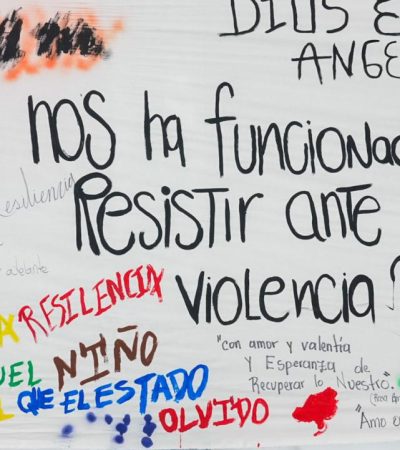 DIOS E
ANGE
nos ha funcionad
Resistir ante
violencia?
Resiliencia
adelante
A RESILENCIA
UEL NIÑO
QUE EL ESTADO
OLVIDO
"con amor y valentía
Y Esperanza de
Recuperar lo Nuestro."
"Amo e